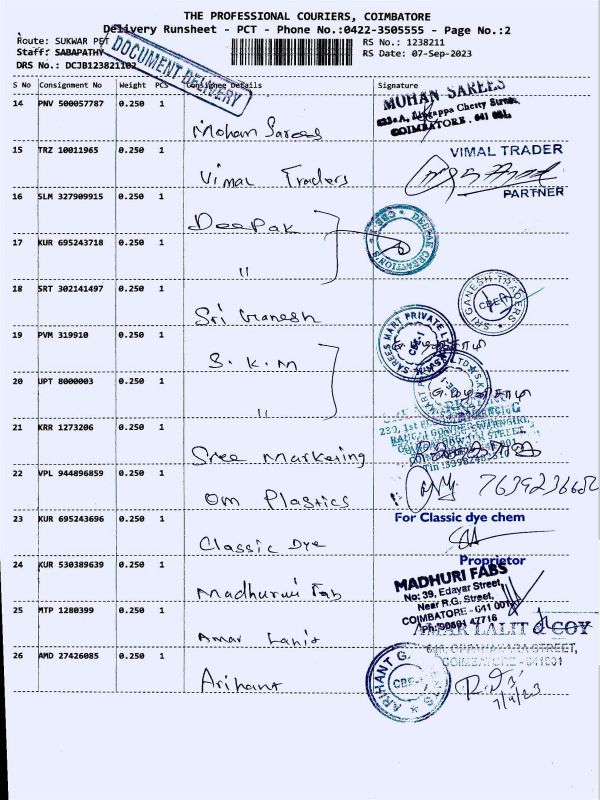 THE PROFESSIONAL COURIERS, COIMBATORE
Delivery Runsheet - PCT - Phone No.:0422-3505555 - Page No.:2
Route: SUKWAR PET
RS No.: 1238211
Staff: SABAPATHY
RS Date: 07-Sep-2023
DRS No.: DCJB123821102
DOCUMENT DELIVERY
S No Consignment No Weight PCS Consignee Details Signature
14 PNV 500057787 0.250 1 Mohan Sarees
MOHAN SAREES
Lingappa Chetty Street,
COIMBATORE. 641 001.
15 TRZ 10011965 0.250 1 Vimal Traders
VIMAL TRADER
PARTNER
16 SLM 327909915 0.250 1 Deepak
DEEPAK CREATIONS
17 KUR 695243718 0.250 1 "
18 SRT 302141497 0.250 1 Sri Ganesh
SRI GANESH TRADERS
CBE-1
19 PVM 319910 0.250 1 S.K.M
SAREES MART PRIVATE
CBE-1
20 UPT 8000003 0.250 1 "
21 KRR 1273206 0.250 1 Sree Marketing
22 VPL 944896859 0.250 1 Om Plastics
23 KUR 695243696 0.250 1 Classic Dye
For Classic dye chem
Proprietor
24 KUR 530389639 0.250 1 Madhuri Fab
MADHURI FABS
No: 39, Edayar Street,
Near R.G. Street,
COIMBATORE - 641 001
25 MTP 1280399 0.250 1 Amar Lalit
AMAR LALIT & COY
STREET,
COIMBATORE - 641001
26 AMD 27426085 0.250 1 Arihant
ARIHANT
CBE-1
7/9/23